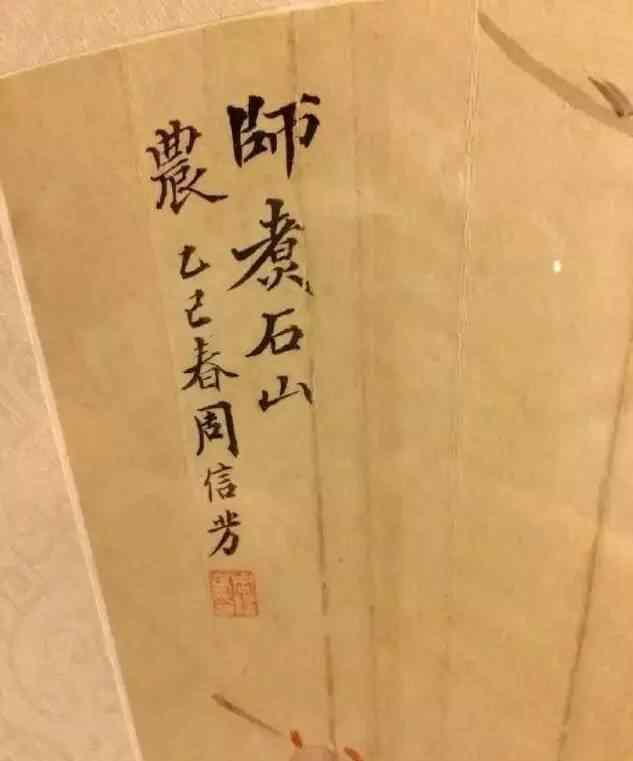 師煑石山
農乙巳春周信芳